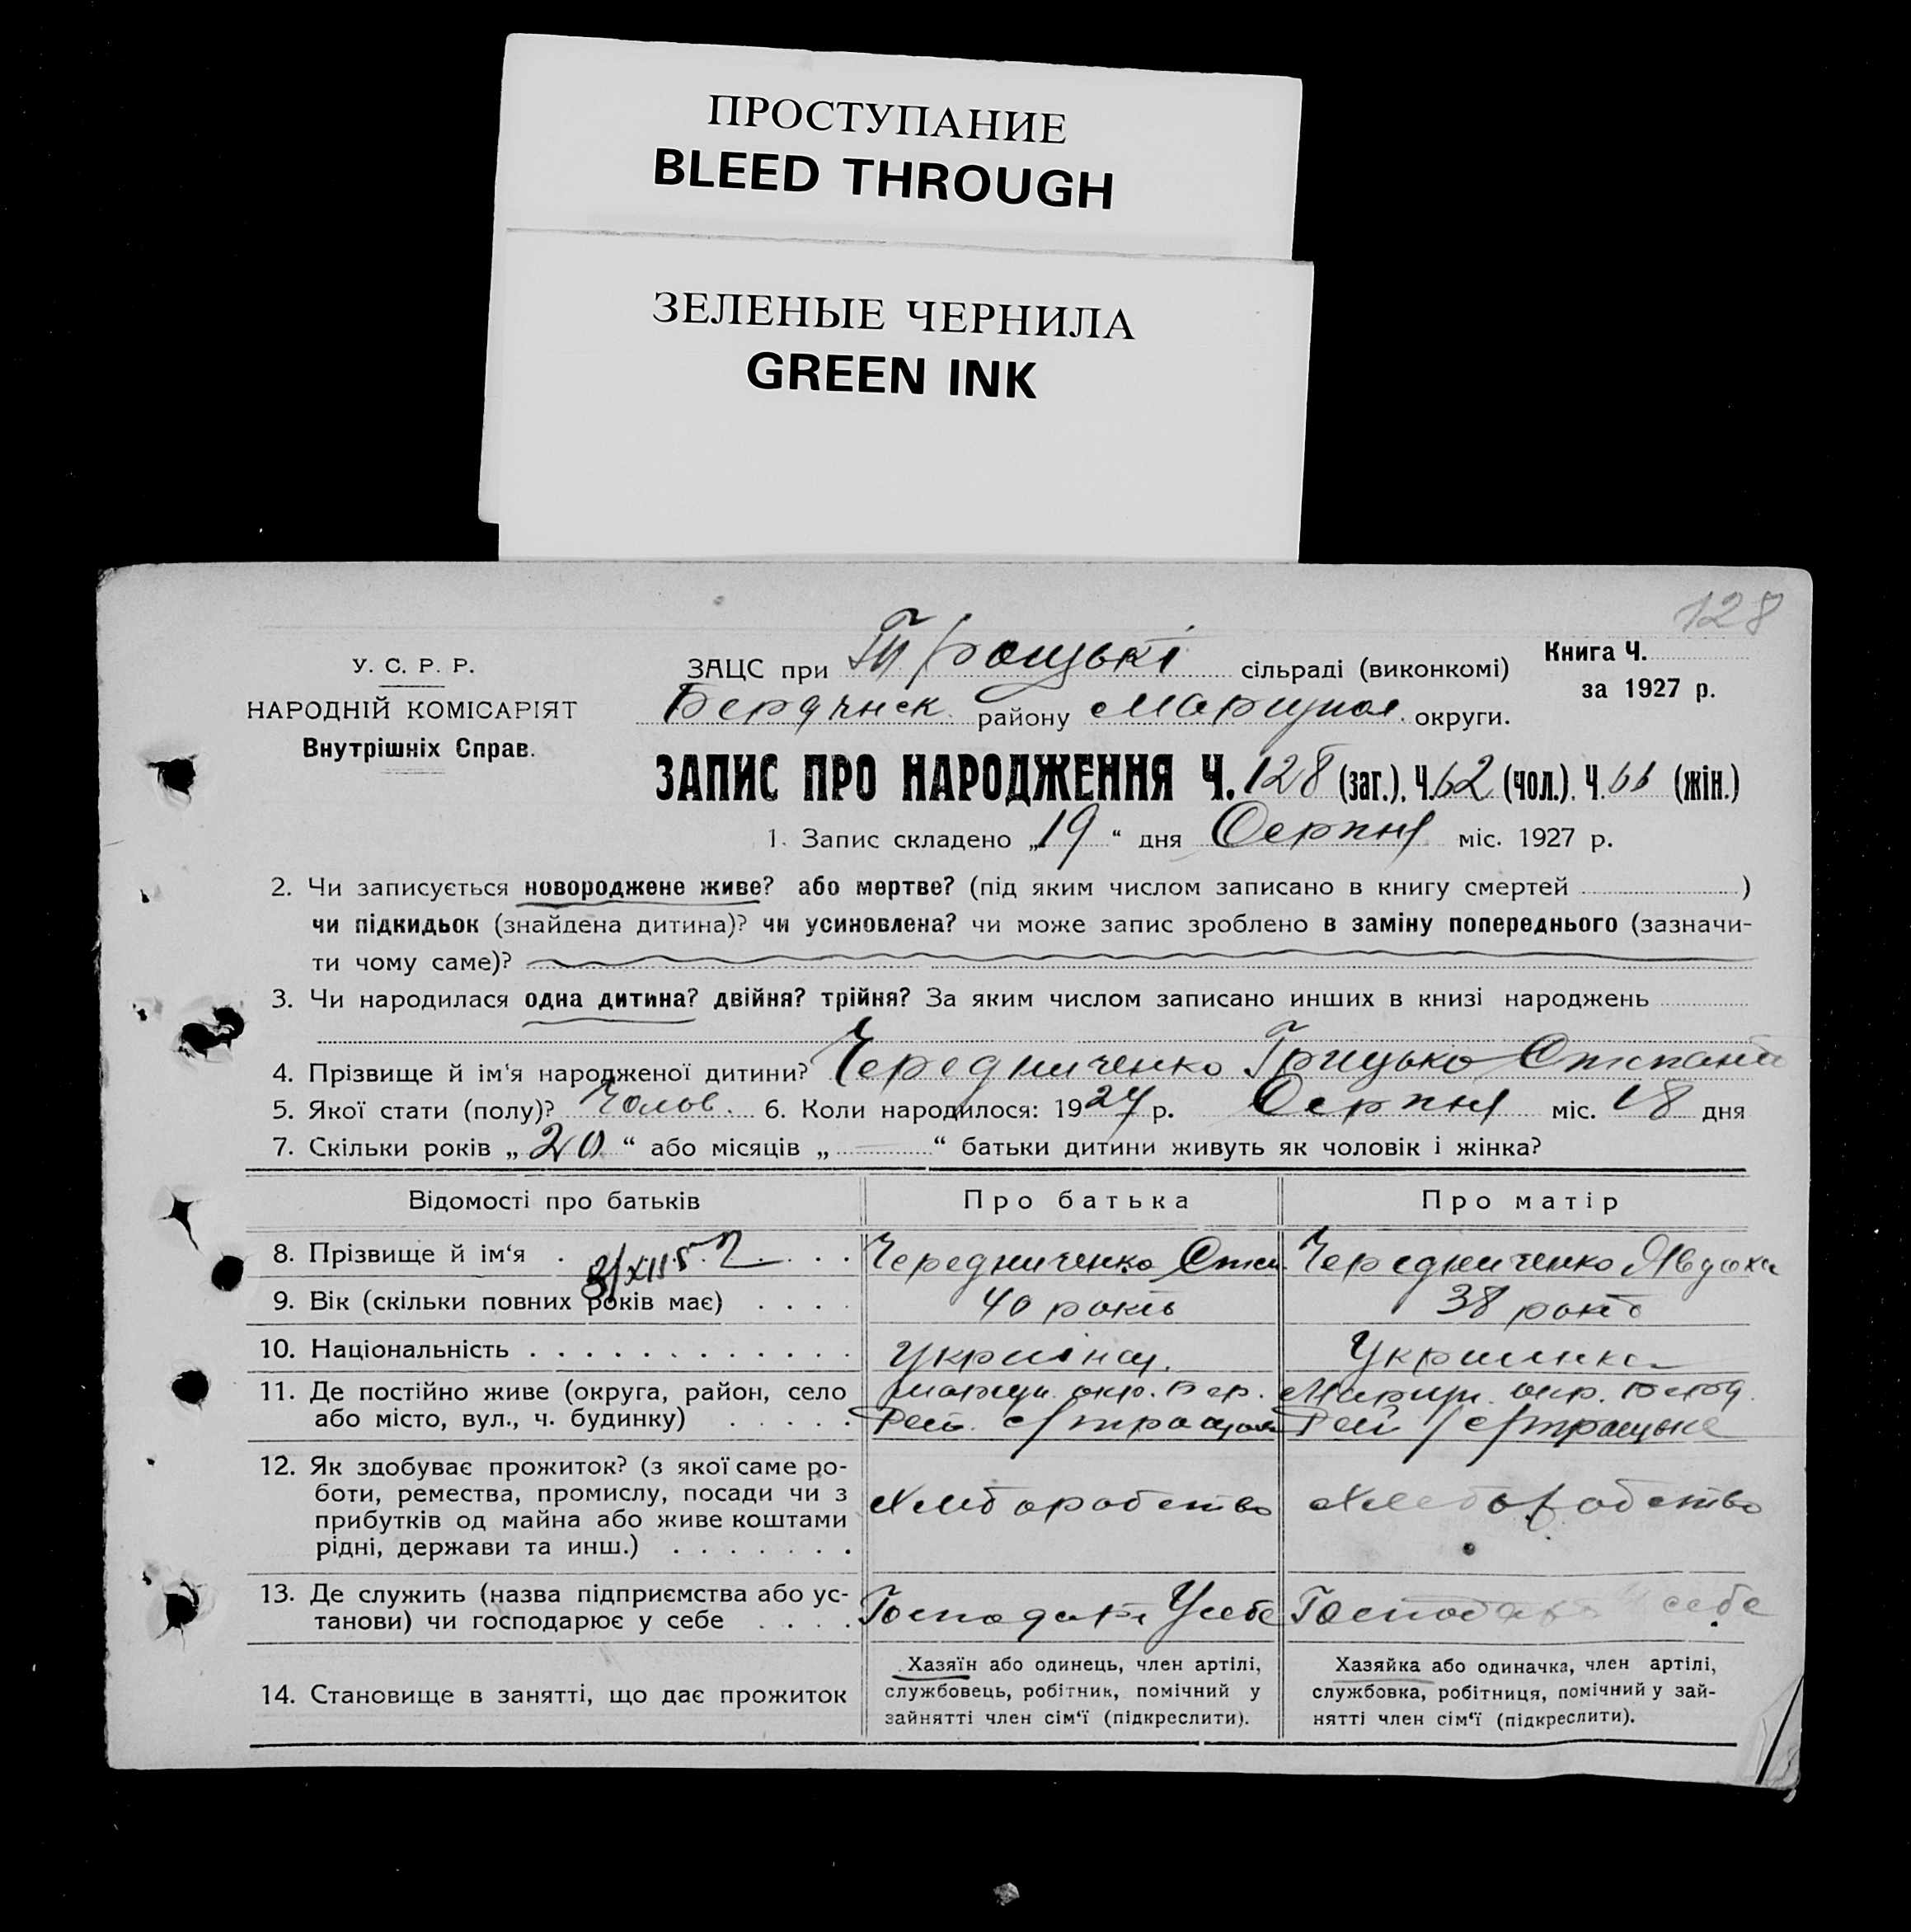 ПРОСТУПАНИЕ
BLEED THROUGH
ЗЕЛЕНЫЕ ЧЕРНИЛА
GREEN INK
128
У. С. Р. Р.
НАРОДНІЙ КОМІСАРІЯТ
Внутрішніх Справ.
ЗАЦС при Троцькі сільраді (виконкомі)
Бердянск району Маріупол. округи.
Книга Ч.
за 1927 р.
ЗАПИС ПРО НАРОДЖЕННЯ Ч. 128 (заг.), Ч. 62 (чол.), Ч. 66 (жін.)
1. Запис складено „19“ дня Серпня міс. 1927 р.
2. Чи записується новороджене живе? або мертве? (під яким числом записано в книгу смертей )
чи підкидьок (знайдена дитина)? чи усиновлена? чи може запис зроблено в заміну попереднього (зазначи-
ти чому саме)?
3. Чи народилася одна дитина? двійня? трійня? За яким числом записано инших в книзі народжень
4. Прізвище й ім'я народженої дитини? Чередниченко Грицько
5. Якої стати (полу)? Чолов. 6. Коли народилося: 1927 р. Серпня міс. 18 дня
7. Скільки років „20“ або місяців „ “ батьки дитини живуть як чоловік і жінка?
Відомості про батьків
Про батька
Про матір
8. Прізвище й ім'я
Чередниченко
Чередниченко Явдоха
9. Вік (скільки повних років має)
40 років
38 років
10. Національність
Україна
Українка
11. Де постійно живе (округа, район, село
або місто, вул., ч. будинку)
Маріуп. окр. Бер.
Рай. с/Троцьке
Маріуп. окр. Берд.
Рай с/Троцьке
12. Як здобуває прожиток? (з якої саме ро-
боти, ремества, промислу, посади чи з
прибутків од майна або живе коштами
рідні, держави та инш.)
Хлеборобство
Хлеборобство
13. Де служить (назва підприємства або ус-
танови) чи господарює у себе
Господар Усебе
Господар себе
14. Становище в занятті, що дає прожиток
Хазяїн або одинець, член артілі,
службовець, робітник, помічний у
зайнятті член сім'ї (підкреслити).
Хазяйка або одиначка, член артілі,
службовка, робітниця, помічний у зай-
нятті член сім'ї (підкреслити).